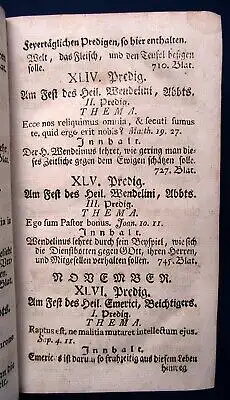 Feyertäglichen Predigen, so hier enthalten.
Welt, das Fleisch, und den Teufel besigen
solle. 710. Blat.
XLIV. Predig.
Am Fest des Heil. Wendelini, Abbts.
II. Predig.
THEMA.
Ecce nos reliquimus omnia, & secuti sumus
te, quid ergo erit nobis? Math. 19. 27.
Innhalt.
Der H. Wendelinus lehret, wie gering man dieses
Zeitliche gegen dem Ewigen schätzen solle.
727. Blat.
XLV. Predig.
Am Fest des Heil. Wendelini, Abbts.
III. Predig.
THEMA.
Ego sum Pastor bonus. Joan. 10. 11.
Innhalt.
Wendelinus lehret durch sein Beyspiel, wie sich
die Dienstbotten gegen GOtt, ihren Herren,
und Mitgesellen verhalten sollen. 745. Blat.
NOVEMBER.
XLVI. Predig.
Am Fest des Heil. Emerici, Beichtigers.
I. Predig.
THEMA.
Raptus est, ne malitia mutaret intellectum ejus.
Sap. 4. 11.
Innhalt.
Emericus ist darum so frühzeitig aus diesem Leben
hinweg